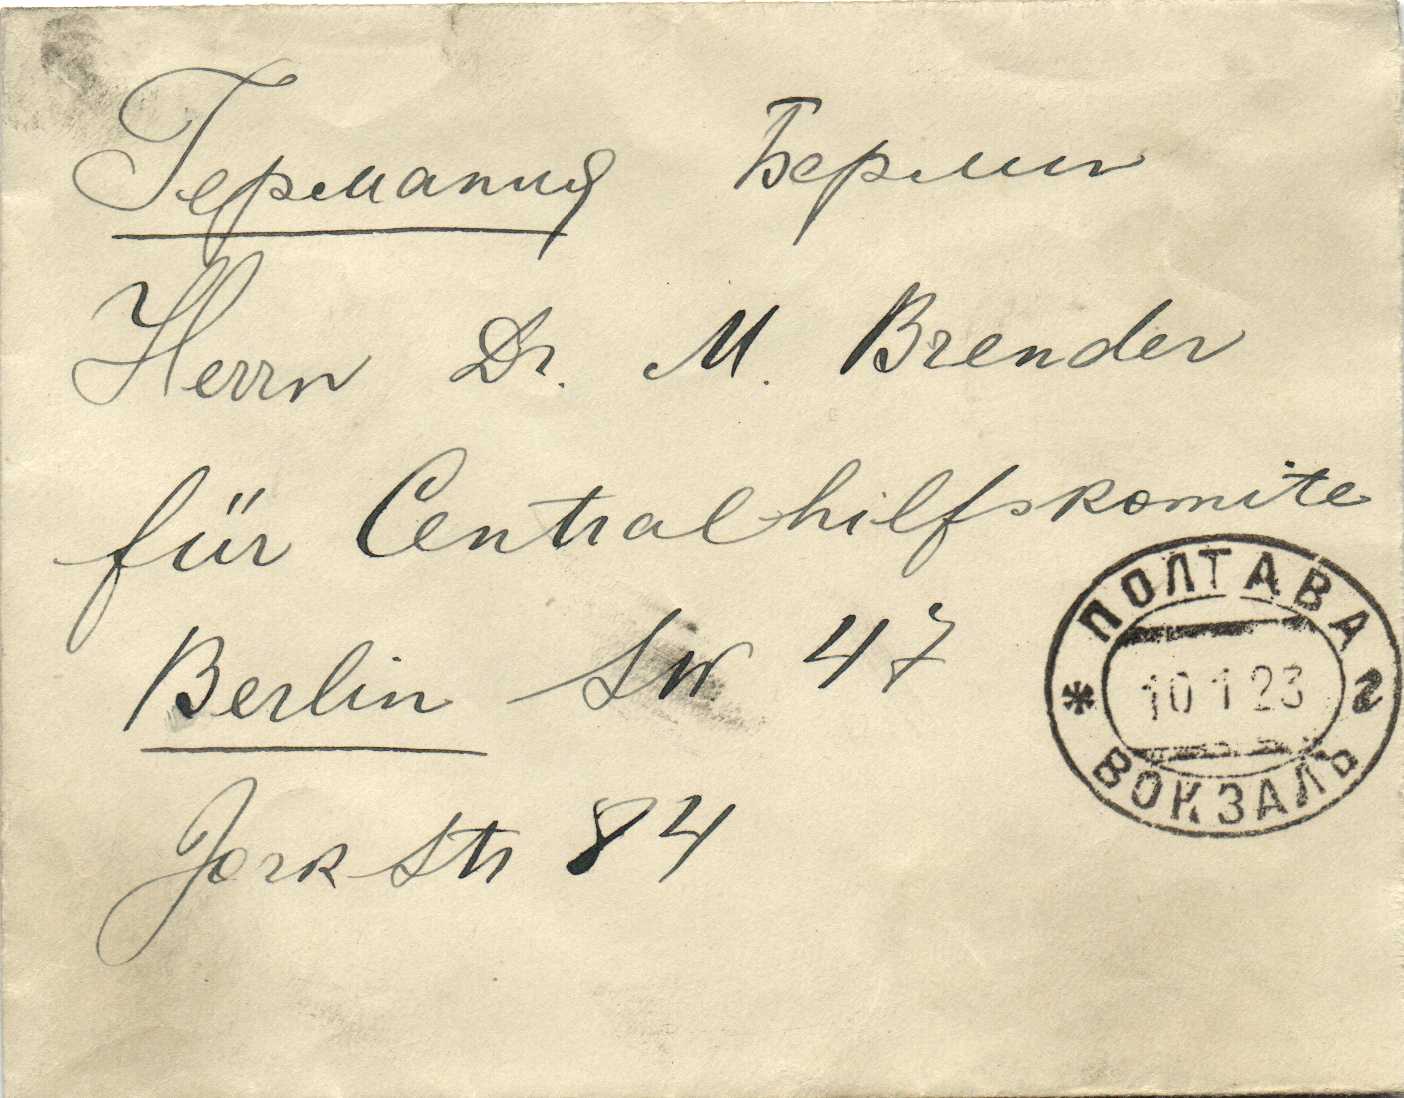 Германия Берлин
Herrn Dr. M. Brender
für Centralhilfskomite
Berlin SW 47
Jork Str 84
ПОЛТАВА
10 1 23
2
ВОКЗАЛЪ